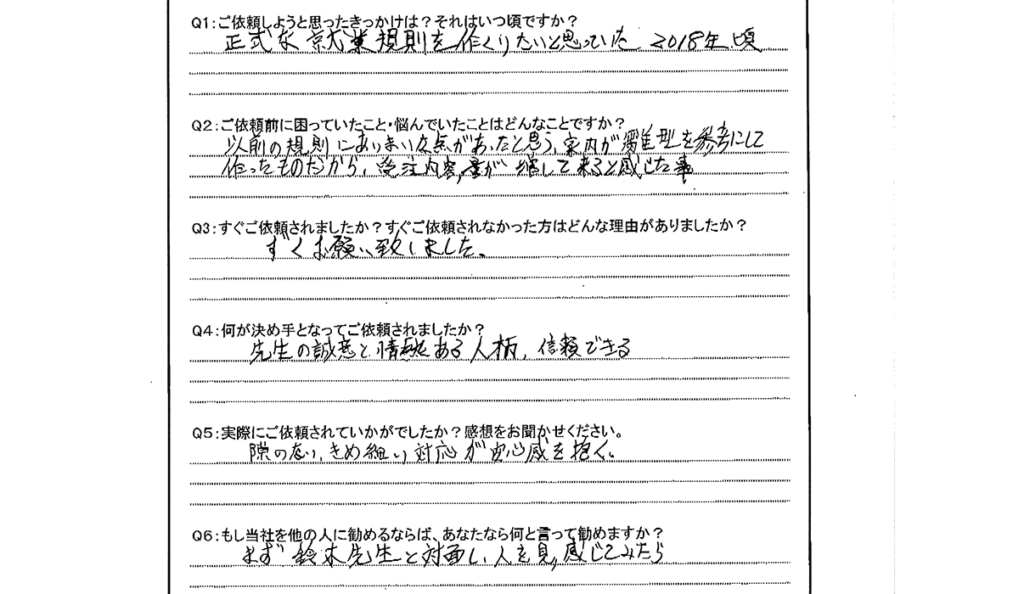 Q1:ご依頼しようと思ったきっかけは？それはいつ頃ですか？
正式な就業規則を作くりたいと思っていた 2018年頃
Q2:ご依頼前に困っていたこと・悩んでいたことはどんなことですか？
以前の規則にあいまいな点があったと思う、案内が雛型を参考にして
作ったものだから、受注内容,量が増して来ると感じた事
Q3:すぐご依頼されましたか？すぐご依頼されなかった方はどんな理由がありましたか？
すぐお願い致しました。
Q4:何が決め手となってご依頼されましたか？
先生の誠意と情熱ある人柄、信頼できる
Q5:実際にご依頼されていかがでしたか？感想をお聞かせください。
隙の無い、きめ細い対応が安心感を抱く。
Q6:もし当社を他の人に勧めるならば、あなたなら何と言って勧めますか？
まず鈴木先生と対面し、人を見,感じてみたら